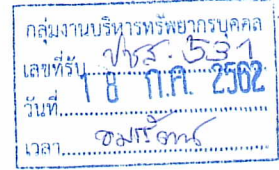 กลุ่มงานบริหารทรัพยากรบุคคล
เลขที่รับ ปชส. 531
วันที่ 18 ก.ค. 2562
เวลา